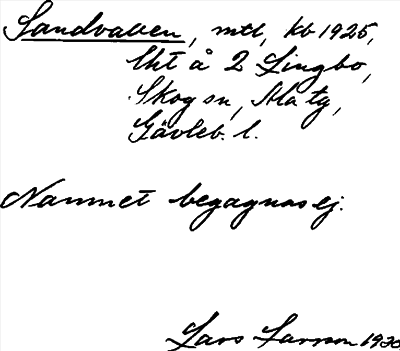 Sandvaken, mtl, kb 1925,
lht å 2 Lingbo,
Skog sn, Ala tg,
Gävleb. l.
Namnet begagnas ej.
Lars Larsson 1930